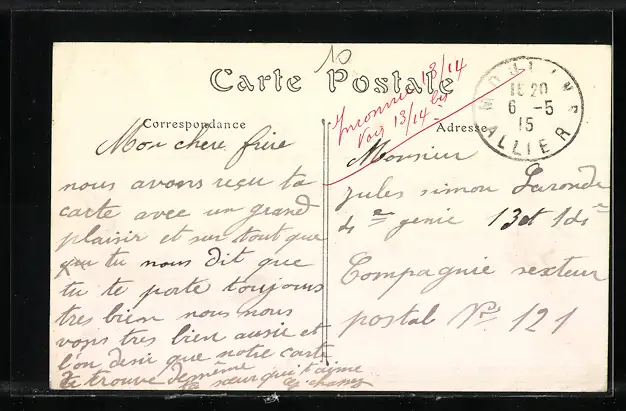 10
Carte Postale
Inconnu 13/14
Voir 13/14 bis
MOULINS
15 20
6 -5
15
ALLIER
Correspondance
Adresse
Mon chere frère
nous avons reçu ta
carte avec un grand
plaisir et sur tout que
tu nous dit que
tu te porte toujours
tres bien nous nous
tres bien aussie et
l'on desir que notre carte
te trouve de même
ta sœur qui t'aime
Monsieur
jules simon Laronde
genie 13et
Compagnie secteur
postal No 121